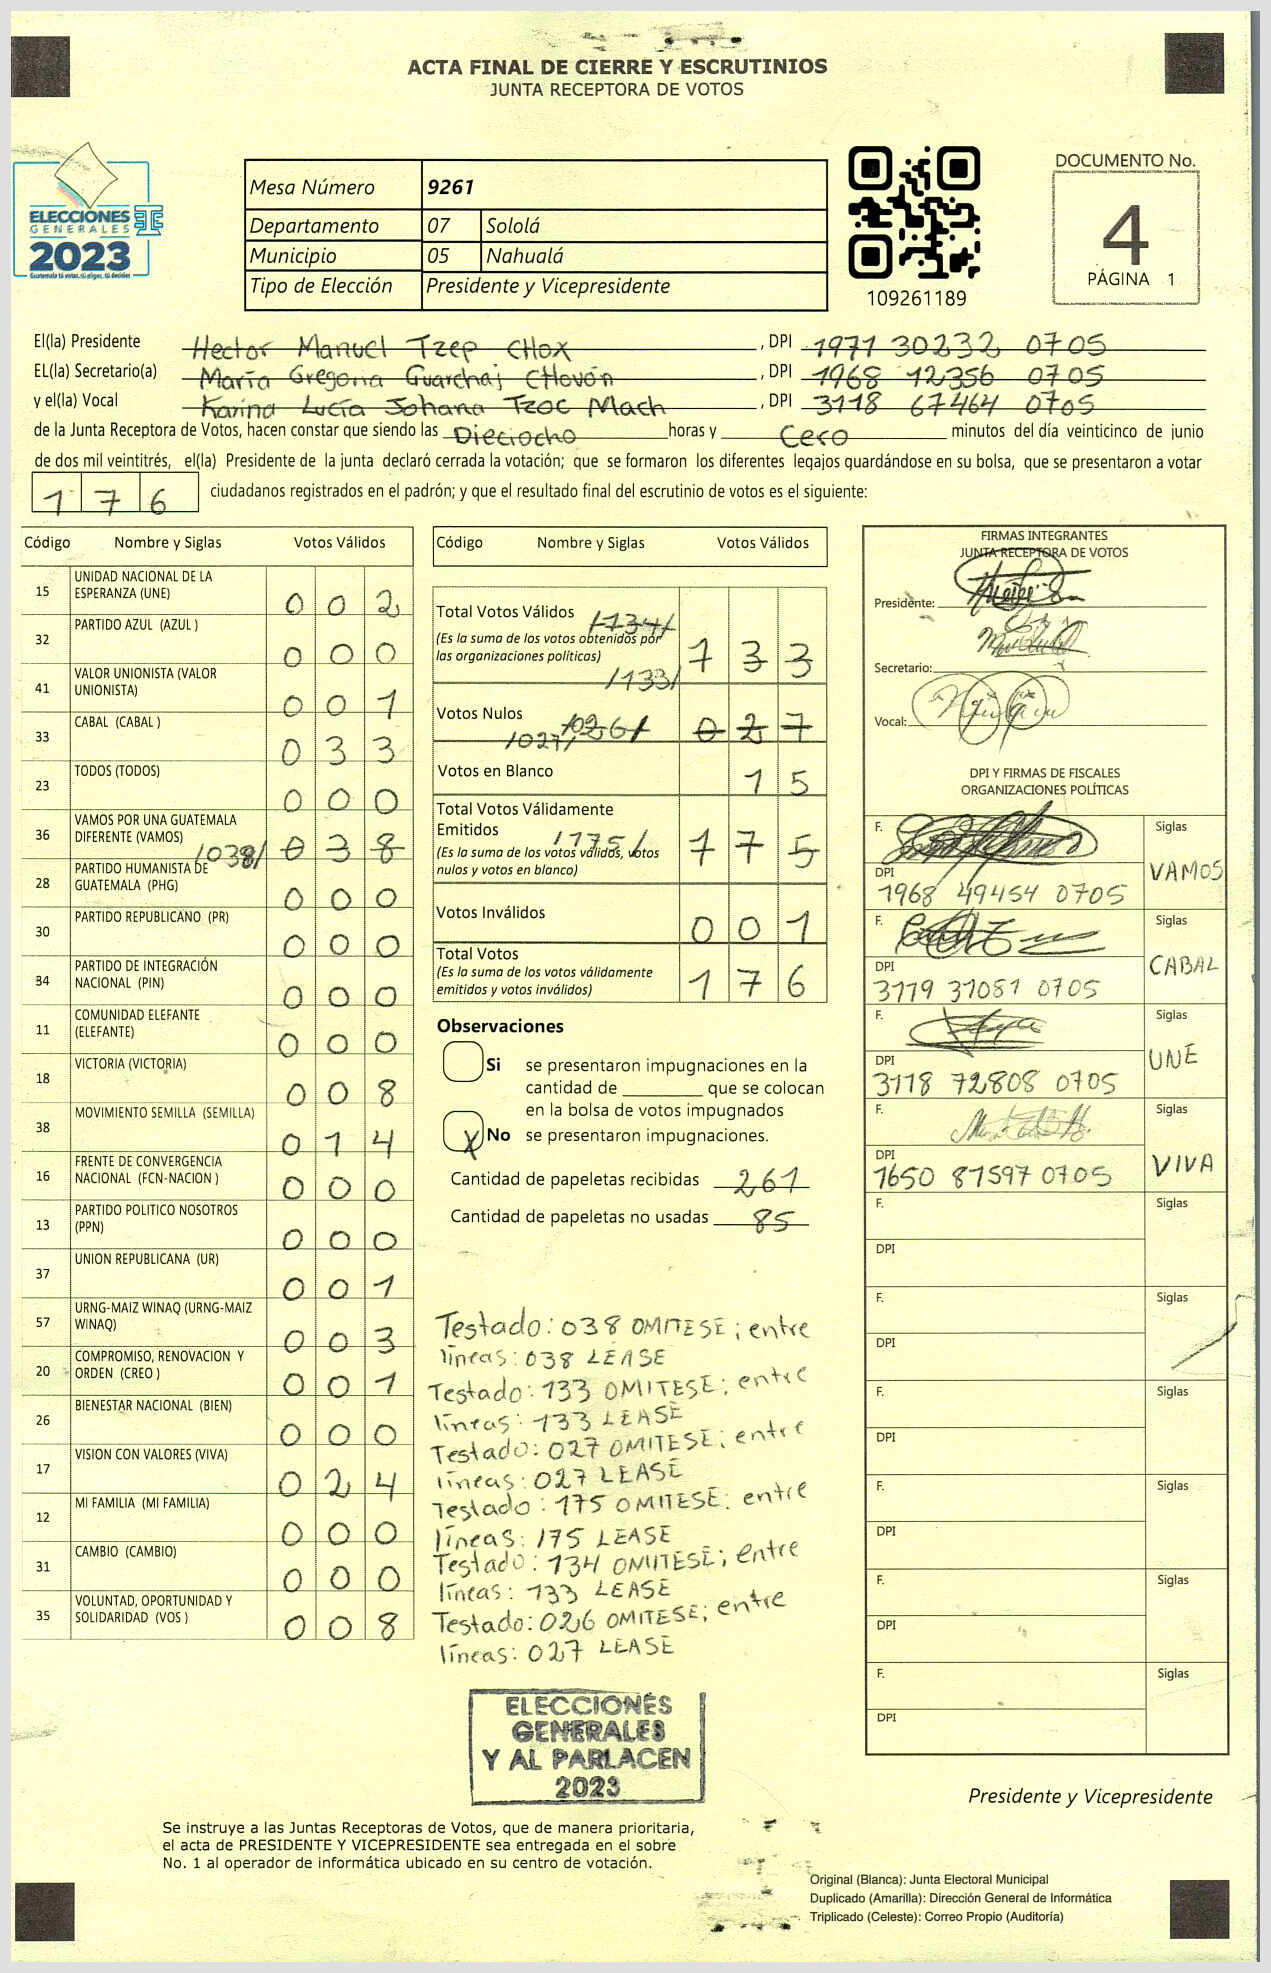 ACTA FINAL DE CIERRE Y ESCRUTINIOS
JUNTA RECEPTORA DE VOTOS
ELECCIONES
GENERALES
2023
Guatemala tú votas, tú eliges, tú decides
Mesa Número 9261
Departamento 07 Sololá
Municipio 05 Nahualá
Tipo de Elección Presidente y Vicepresidente
109261189
DOCUMENTO No.
4
PÁGINA 1
El(la) Presidente Hector Manuel Tzep CHox , DPI 1971 30232 0705
EL(la) Secretario(a) María Gregoria Guarchaj CHovón , DPI 1968 12356 0705
y el(la) Vocal Karina Lucía Johana Tzoc Mach , DPI 3118 67464 0705
de la Junta Receptora de Votos, hacen constar que siendo las Dieciocho horas y Cero minutos del día veinticinco de junio
de dos mil veintitrés, el(la) Presidente de la junta declaró cerrada la votación; que se formaron los diferentes legajos guardándose en su bolsa, que se presentaron a votar
176 ciudadanos registrados en el padrón; y que el resultado final del escrutinio de votos es el siguiente:
Código Nombre y Siglas Votos Válidos
15 UNIDAD NACIONAL DE LA
ESPERANZA (UNE) 002
32 PARTIDO AZUL (AZUL ) 000
41 VALOR UNIONISTA (VALOR
UNIONISTA) 001
33 CABAL (CABAL ) 033
23 TODOS (TODOS) 000
36 VAMOS POR UNA GUATEMALA
DIFERENTE (VAMOS) /038/ 038
28 PARTIDO HUMANISTA DE
GUATEMALA (PHG) 000
30 PARTIDO REPUBLICANO (PR) 000
34 PARTIDO DE INTEGRACIÓN
NACIONAL (PIN) 000
11 COMUNIDAD ELEFANTE
(ELEFANTE) 000
18 VICTORIA (VICTORIA) 008
38 MOVIMIENTO SEMILLA (SEMILLA) 014
16 FRENTE DE CONVERGENCIA
NACIONAL (FCN-NACION ) 000
13 PARTIDO POLITICO NOSOTROS
(PPN) 000
37 UNION REPUBLICANA (UR) 001
57 URNG-MAIZ WINAQ (URNG-MAIZ
WINAQ) 003
20 COMPROMISO, RENOVACION Y
ORDEN (CREO ) 001
26 BIENESTAR NACIONAL (BIEN) 000
17 VISION CON VALORES (VIVA) 024
12 MI FAMILIA (MI FAMILIA) 000
31 CAMBIO (CAMBIO) 000
35 VOLUNTAD, OPORTUNIDAD Y
SOLIDARIDAD (VOS ) 008
Código Nombre y Siglas Votos Válidos
Total Votos Válidos /134/
(Es la suma de los votos obtenidos por
las organizaciones políticas) 133
/133/
Votos Nulos /026/ 027
/027/
Votos en Blanco 15
Total Votos Válidamente
Emitidos /175/ 175
(Es la suma de los votos válidos, votos
nulos y votos en blanco)
Votos Inválidos 001
Total Votos
(Es la suma de los votos válidamente
emitidos y votos inválidos) 176
Observaciones
Si se presentaron impugnaciones en la
cantidad de ________ que se colocan
en la bolsa de votos impugnados
X No se presentaron impugnaciones.
Cantidad de papeletas recibidas 261
Cantidad de papeletas no usadas 85
Testado: 038 OMITESE; entre
líneas: 038 LEASE
Testado: 133 OMITESE; entre
líneas: 133 LEASE
Testado: 027 OMITESE; entre
líneas: 027 LEASE
Testado: 175 OMITESE; entre
líneas: 175 LEASE
Testado: 134 OMITESE; entre
líneas: 133 LEASE
Testado: 026 OMITESE; entre
líneas: 027 LEASE
ELECCIONES
GENERALES
Y AL PARLACEN
2023
FIRMAS INTEGRANTES
JUNTA RECEPTORA DE VOTOS
Presidente:
Secretario:
Vocal:
DPI Y FIRMAS DE FISCALES
ORGANIZACIONES POLÍTICAS
F. Siglas
VAMOS
DPI
1968 49454 0705
F. Siglas
CABAL
DPI
3119 31081 0705
F. Siglas
UNE
DPI
3118 72808 0705
F. Siglas
VIVA
DPI
1650 81597 0705
F. Siglas
DPI
F. Siglas
DPI
F. Siglas
DPI
F. Siglas
DPI
F. Siglas
DPI
F. Siglas
DPI
Presidente y Vicepresidente
Se instruye a las Juntas Receptoras de Votos, que de manera prioritaria,
el acta de PRESIDENTE Y VICEPRESIDENTE sea entregada en el sobre
No. 1 al operador de informática ubicado en su centro de votación.
Original (Blanca): Junta Electoral Municipal
Duplicado (Amarilla): Dirección General de Informática
Triplicado (Celeste): Correo Propio (Auditoría)